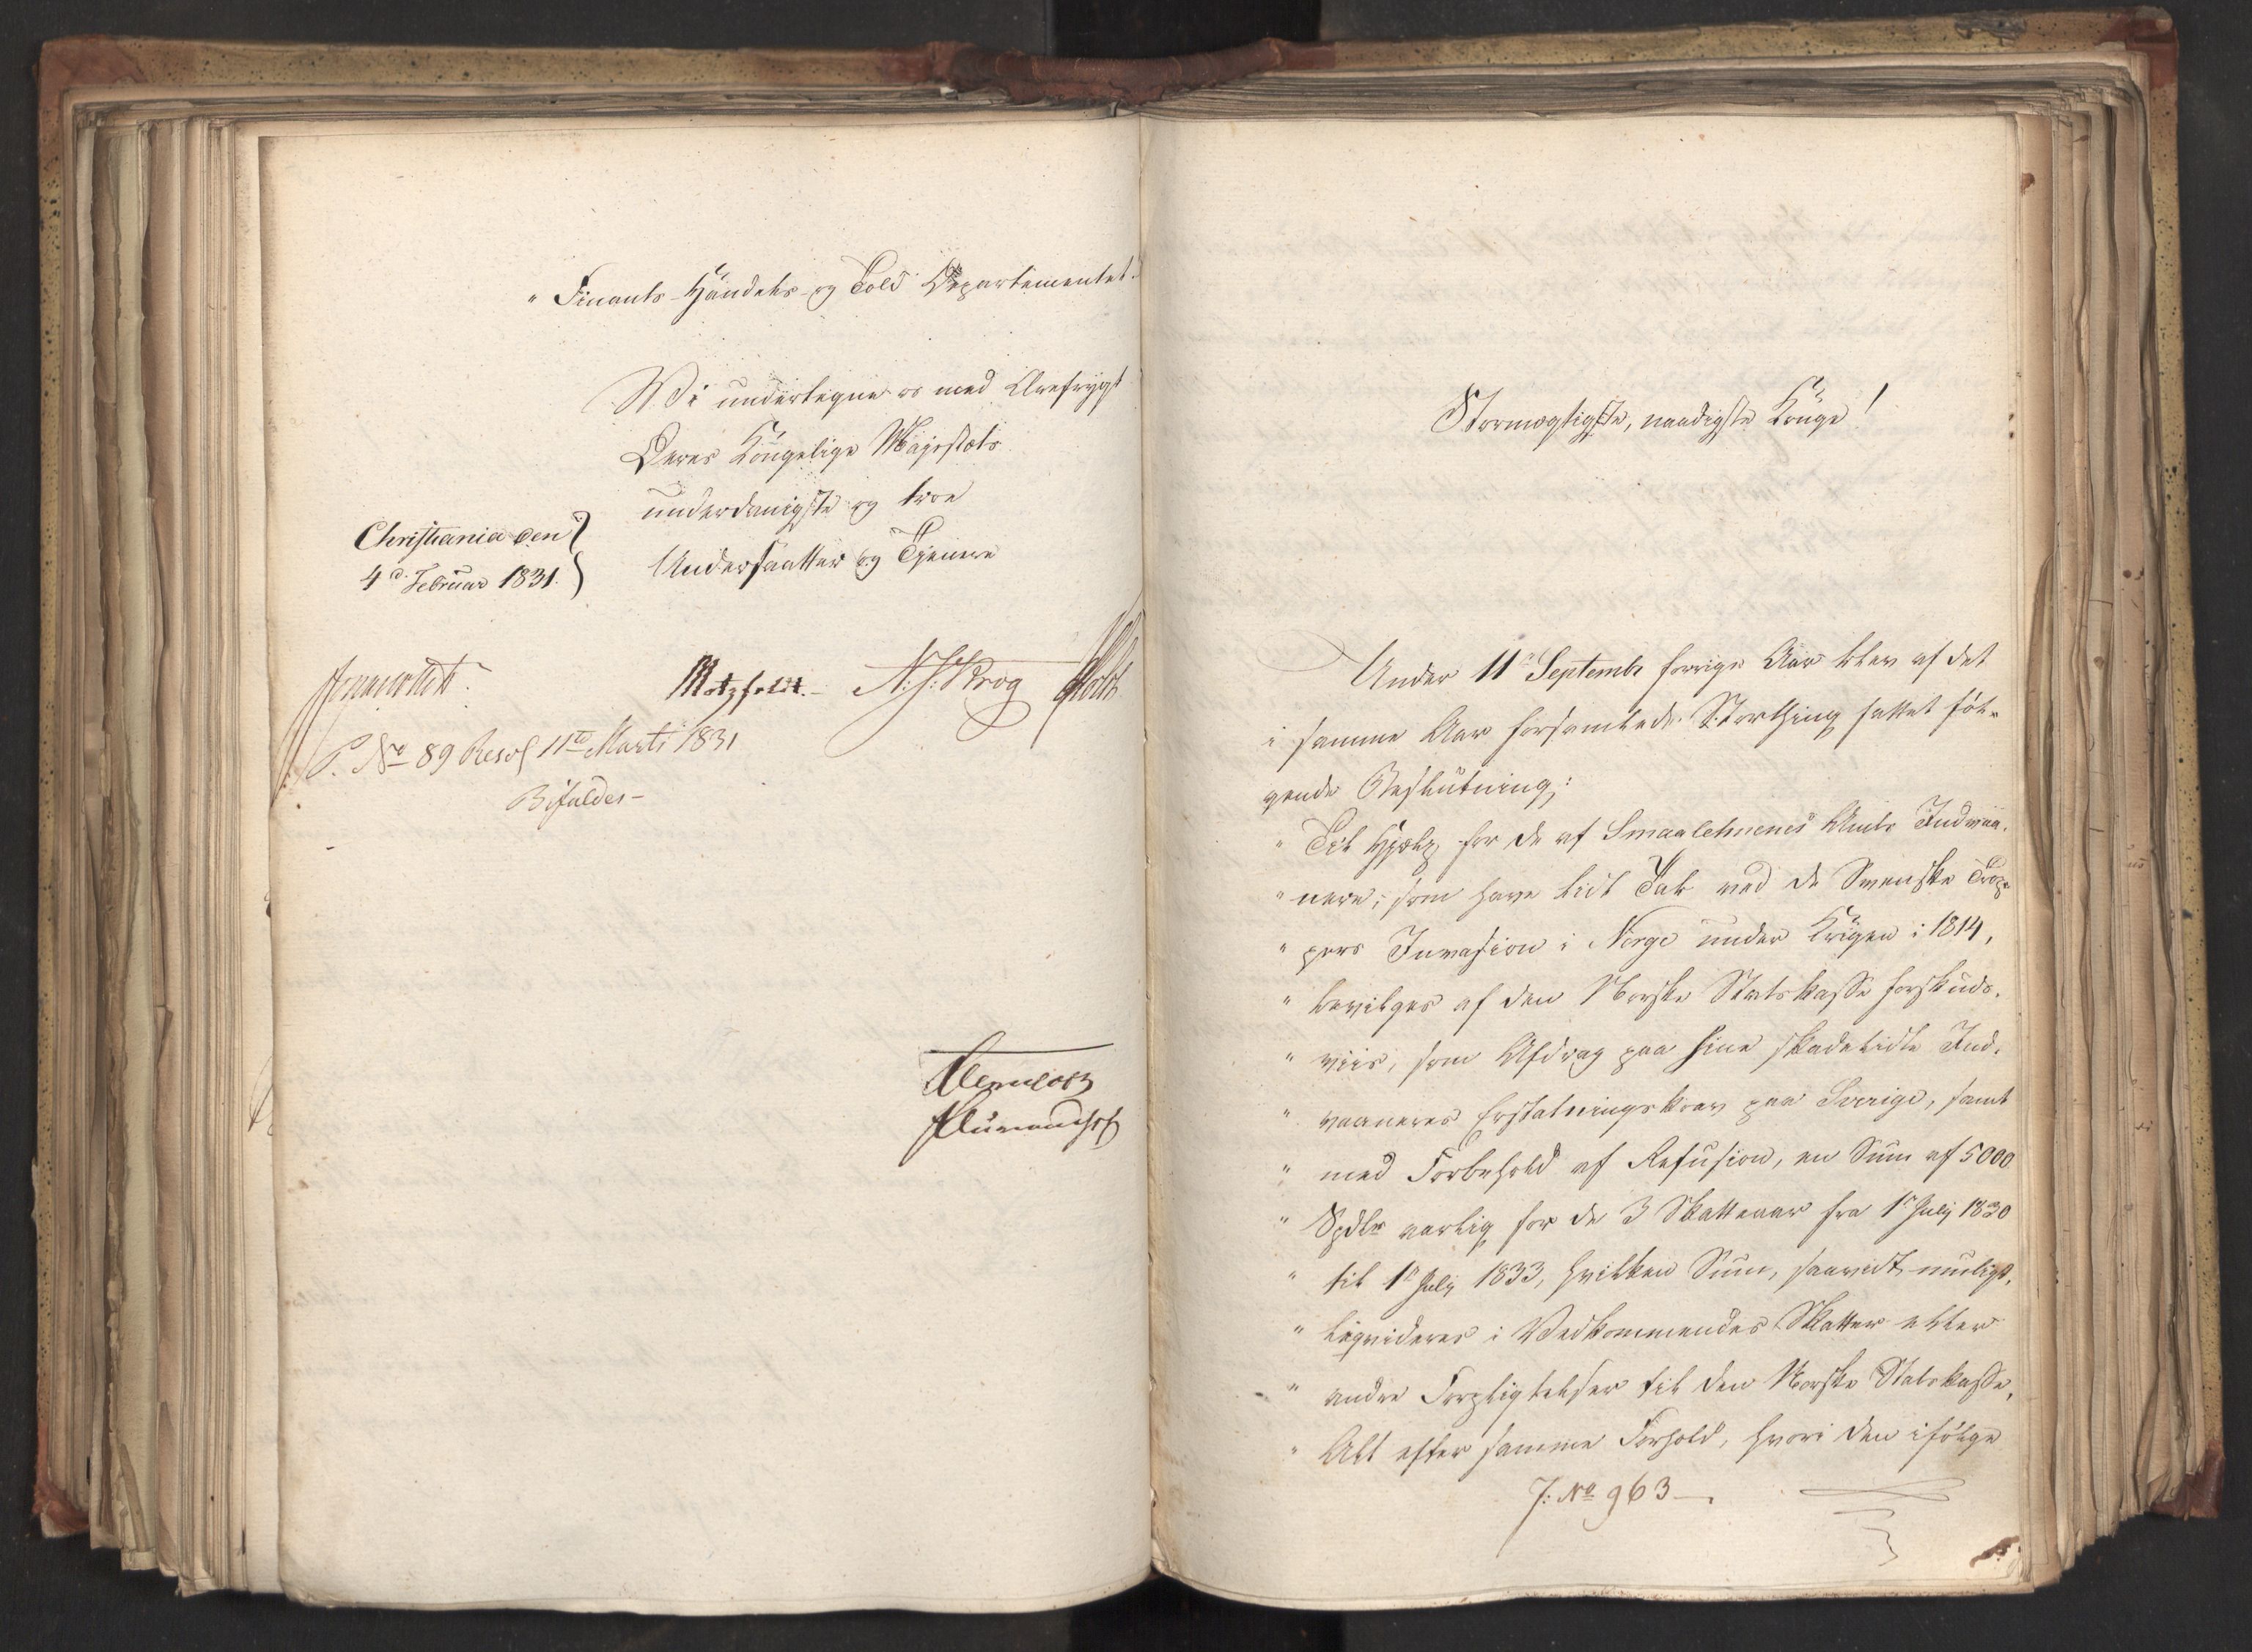 " Finants- Handels- og Told Departementet."
Vi undertegne os med Ærefrygt
Deres Kongelige Majestæts
underdanigste og troe
Christiania den
4d. Februar 1831.
Undersaatter og Tjenere
Motzfeldt. N: J: Krog Holst
P. No 89 Resol 11te Marti 1831
Bifaldes-
Stormægtigste, naadigste Konge!
Under 11te Septembr forrige Aar blev af det
i samme Aar forsamlede Storthing fattet föl-
gende Beslutning:
" Til Hjælp for de af Smaalehnenes Amts Indvaa-
" nere, som have lidt Tab ved de Svenske Trop-
" pers Invasion i Norge under Krigen i 1814,
" bevilges af den Norske Statskasse forskuds-
" viis, som Afdrag paa sine skadelidte Ind-
" vaaneres Erstatningskrav paa Sverige, samt
" med Forbehold af Refusion, en Sum af 5000
" Spdlr aarlig for de 3 Skatteaar fra 1e July 1830
" til 1e July 1833, hvilken Sum, saavidt muligt,
" liqvideres i Vedkommendes Skatter eller
" andre Forpligtelser til den Norske Statskasse,
" Alt efter samme Forhold, hvori den ifölge
J: No 963-.